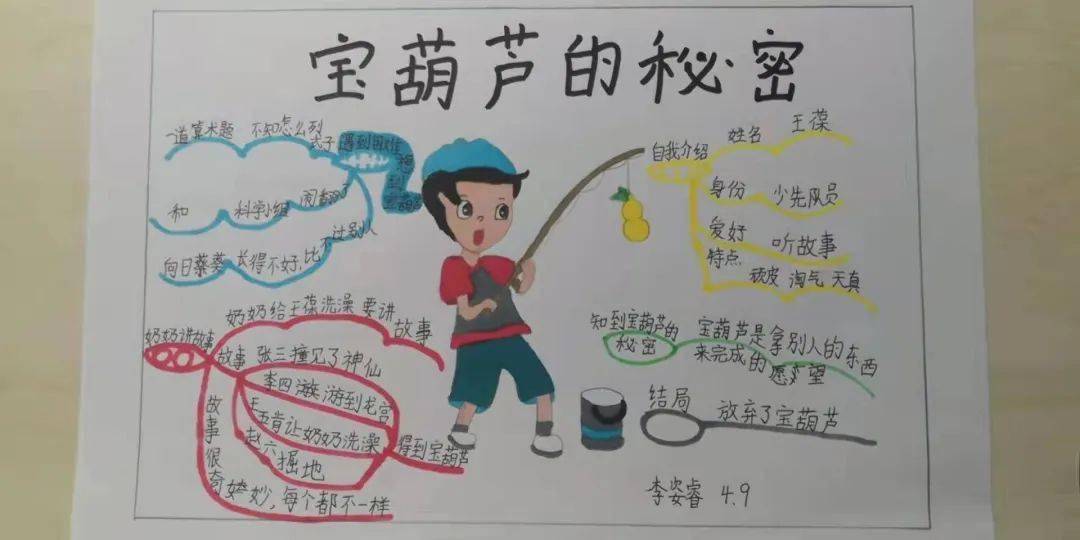 宝葫芦的秘密
自我介绍
姓名 王葆
身份 少先队员
爱好 听故事
特点 顽皮 淘气 天真
奶奶讲故事
奶奶给王葆洗澡 要讲故事
故事 张三撞见了神仙
李四 游到龙宫
王五肯让奶奶洗澡
赵六掘地
得到宝葫芦
故事很奇妙,每个都不一样
遇到困难
想到宝葫芦
一道算术题 不知怎么列式子
和 科学小组 闹翻了
向日葵 长得不好,比不过别人
知到宝葫芦的秘密
宝葫芦是拿别人的东西
来完成的愿望
结局 放弃了宝葫芦
李姿睿 4.9